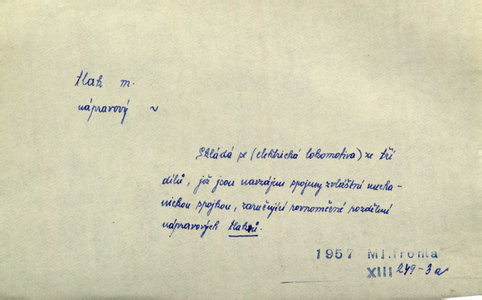 tlak m.
nápravový ~
Skládá se (elektrická lokomotiva) ze tří
dílů, jež jsou navzájem spojeny zvláštní mecha-
nickou spojkou, zaručující rovnoměrné rozdělení
nápravových tlaků.
1957 Ml. fronta
XIII 249-3a